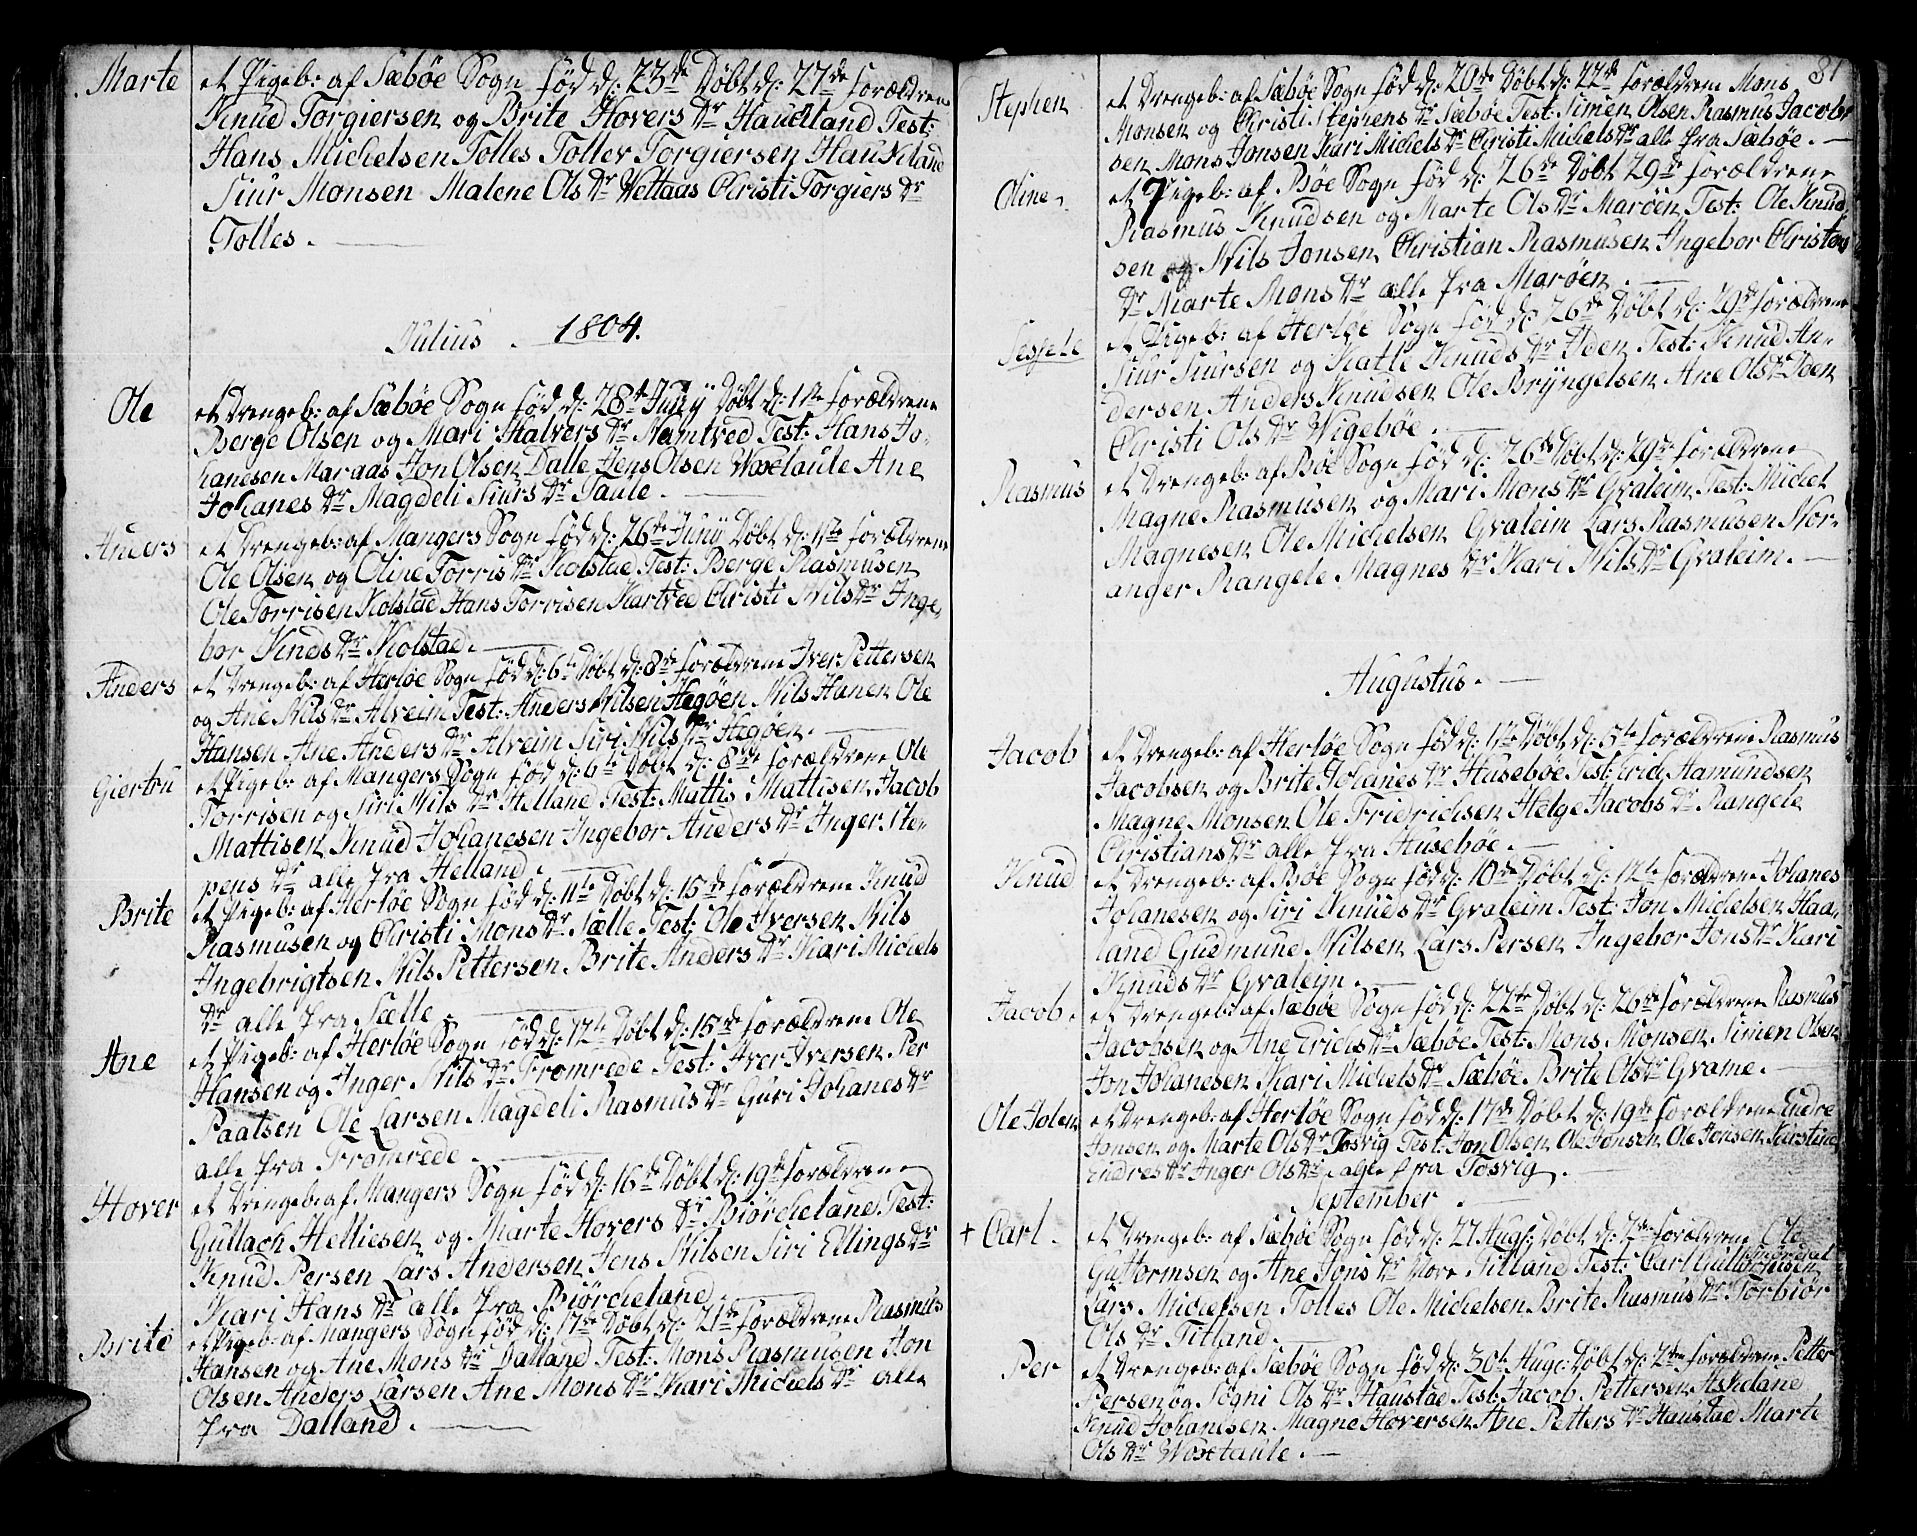 Marte et Pigeb: af Sæbøe Sogn fød d: 23de Døbt d: 27de forældrene
Knud Torgiersen og Brite Hovers Dr Haukland Test:
Hans Michelsen Tolles Tollev Torgiersen Haukland
Siur Monsen Malene Ols Dr Vettaas Christi Torgiers Dr
Tolles.
Julius 1804.
Ole et Drengeb: af Sæbøe Sogn fød d: 28de Juny Døbt d: 1te forældrene
Berge Olsen og Mari Halvers Dr Namtved Test: Hans Jo-
hanesen Maraas Jon Olsen Dalle Jens Olsen Woxetaule Ane
Johanes Dr Magdeli Siurs Dr Taule.
Anders et Drengeb: af Mangers Sogn fød d: 26te Juny Døbt d: 1te forældrene
Ole Olsen og Oline Torris Dr Kolstad Test: Berge Rasmusen
Ole Torrisen Kolstad Hans Torrisen Kartved Christi Nils Dr Inge-
bor Knuds Dr Kolstad.
Anders et Drengeb: af Herløe Sogn fød d: 6te Døbt d: 8de forældrene Iver Pettersen
og Ane Nils Dr Alveim Test: Anders Nilsen Hegøen Nils Hanen Ole
Hansen Ane Anders Dr Alveim Siri Nils Dr Hegøen.
Giertru et Pigeb: af Mangers Sogn fød d: 6te Døbt d: 8de forældrene Ole
Torrisen og Siri Nils Dr Helland Test: Mattis Mattisen Jacob
Mattisen Knud Johanesen Ingebor Anders Dr Inger Ste-
pens Dr alle fra Helland.
Brite et Pigeb: af Herløe Sogn fød d: 11te Døbt d: 15de forældrene Knud
Rasmusen og Christi Mons Dr Sælle Test: Ole Iversen Nils
Ingebrigtsen Nils Pettersen Brite Anders Dr Kari Michels
Dr alle fra Sælle.
Ane et Pigeb: af Herløe Sogn fød d: 12te Døbt d: 15de forældrene Ole
Hansen og Inger Nils Dr Fromrede Test: Iver Iversen Per
Paalsen Ole Larsen Magdeli Rasmus Dr Guri Johanes Dr
alle fra Fromrede.
Hover et Drengeb: af Mangers Sogn fød d: 16de Døbt d: 19de forældrene
Gullach Helliesen og Marte Hovers Dr Biørcheland Test:
Knud Persen Lars Andersen Jens Nilsen Siri Ellings Dr
Kari Hans Dr alle fra Biørcheland.
Brite et Pigeb: af Mangers Sogn fød d: 17de Døbt d: 21de forældrene Rasmus
Hansen og Ane Mons Dr Dalland Test: Mons Rasmusen Jon
Olsen Anders Larsen Ane Mons Dr Kari Michels Dr alle
fra Dalland.
81
Stephen et Drengeb: af Sæbøe Sogn fød d: 20de Døbt d: 22de forældrene Mons
Monsen og Christi Stephens Dr Sæbøe Test: Simen Olsen Rasmus Jacob-
sen Mons Jonsen Kari Michels Dr Christi Michels Dr alle fra Sæbøe.
Oline et Pigeb: af Bøe Sogn fød d: 26de Døbt 29de forældrene
Rasmus Knudsen og Marte Ols Dr Marøen Test: Ole Knud-
sen og Nils Jonsen Christian Rasmusen Ingebor Christens
Dr Marte Mons Dr alle fra Marøen.
Sessele et Pigeb: af Herløe Sogn fød d: 26de Døbt d: 29de forældrene
Siur Siursen og Katle Knuds Dr Øden Test: Knud An-
dersen Anders Knudsen Ole Bryngelsen Ane Ols Dr Øden
Christi Ols Dr Wigebøe.
Rasmus et Drengeb: af Bøe Sogn fød d: 26de Døbt d: 29de forældrene
Magne Rasmusen og Mari Mons Dr Gvaleim Test: Michel
Magnesen Ole Michelsen Gvaleim Lars Rasmusen Nor-
anger Rangele Magnes Dr Kari Nils Dr Gvaleim.
Augustus.
Jacob et Drengeb: af Herløe Sogn fød d: 1te Døbt d: 5te forældrene Rasmus
Jacobsen og Brite Johanes Dr Husebøe Test: Erich Hamundsen
Magne Monsen Ole Friedrichsen Helge Jacobs Dr Rangele
Christians Dr alle fra Husebøe.
Knud et Drengeb: af Bøe Sogn fød d: 10de Døbt d: 12te forældrene Johanes
Johanesen og Siri Knuds Dr Gvaleim Test: Jon Michelsen Haa-
land Gudmund Nilsen Lars Persen Ingebor Jons Dr Kari
Knuds Dr Gvaleim.
Jacob. et Drengeb: af Sæbøe Sogn fød d: 22de Døbt d: 26de forældrene Rasmus
Jacobsen og Ane Erichs Dr Sæbøe Test: Mons Monsen Simen Olsen
Jon Johanesen Kari Michels Dr Sæbøe Brite Ols Dr Gvame.
Ole Johen et Drengeb: af Herløe Sogn fød d: 17de Døbt d: 19de forældrene Endre
Jonsen og Marte Ols Dr Tosvig Test: Jon Olsen Ole Jonsen Ole Jonsen Kirstine
Endres Dr Inger Ols Dr alle fra Tosvig.
September.
+ Carl. et Drengeb: af Sæbøe Sogn fød d: 27 Aug: Døbt d: 2den forældrene Ole
Guttormsen og Ane Jons Dr Titland Test: Carl Gullachsen
Lars Michelsen Tolles Ole Michelsen Brite Rasmus Dr Torbiør
Ols Dr Titland.
Per et Drengeb: af Sæbøe Sogn fød d: 30te Aug: Døbt d: 2den forældrene Petter
Persen og Søgni Ols Dr Haustad Test: Jacob Pettersen Askeland
Knud Johanesen Magne Hoversen Ane Petters Dr Haustad Marte
Ols Dr Woxetaule.